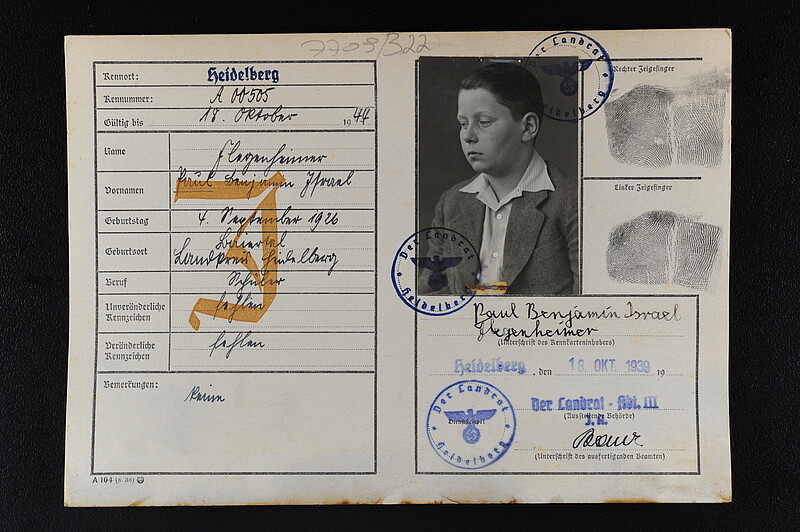 7709/322
Kennort: Heidelberg
Kennummer: A 00505
Gültig bis 18. Oktober 1944
Name Flegenheimer
Vornamen Paul Benjamin Israel
Geburtstag 4. September 1926
Geburtsort Baiertal
Landkreis Heidelberg
Beruf Schüler
Unveränderliche Kennzeichen fehlen
Veränderliche Kennzeichen fehlen
Bemerkungen: keine
J
A 104 (8. 38)
Der Landrat
Heidelberg
Rechter Zeigefinger
Linker Zeigefinger
Der Landrat
Heidelberg
Paul Benjamin Israel
Flegenheimer
(Unterschrift des Kennkarteninhabers)
Heidelberg, den 18. OKT. 1939 19
Der Landrat
Dienststempel
Heidelberg
Der Landrat - Abt. III
(Ausstellende Behörde)
J. A.
(Unterschrift des ausfertigenden Beamten)